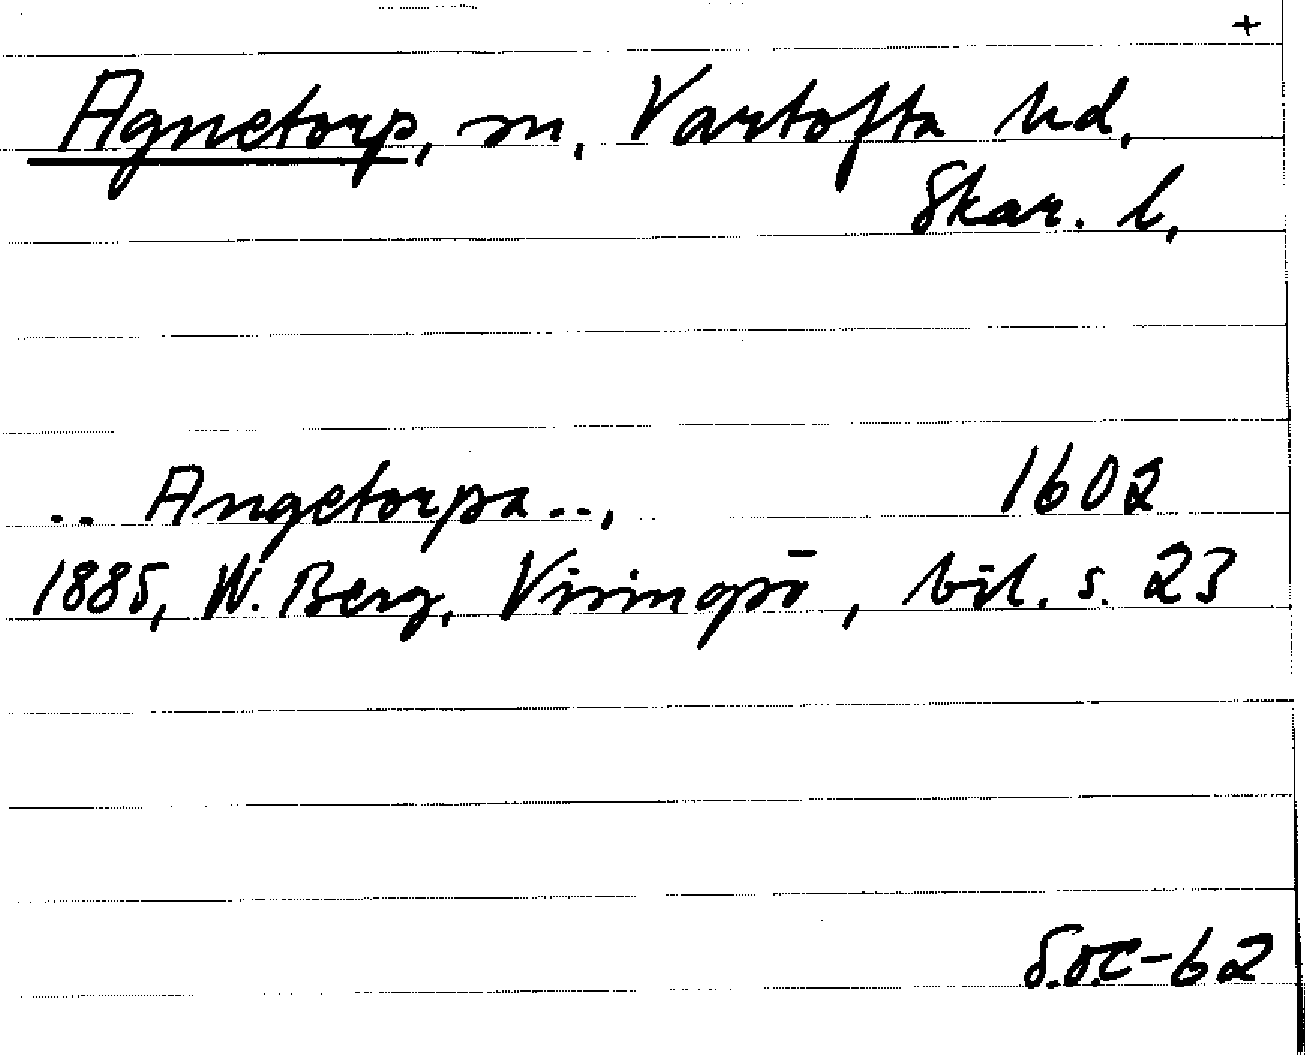 +
Agnetorp, sn, Vartofta hd,
Skar. l,
.. Angetorpa .., 1602
1885, W. Berg, Visingsö, bil. s. 23
S.O.C-62